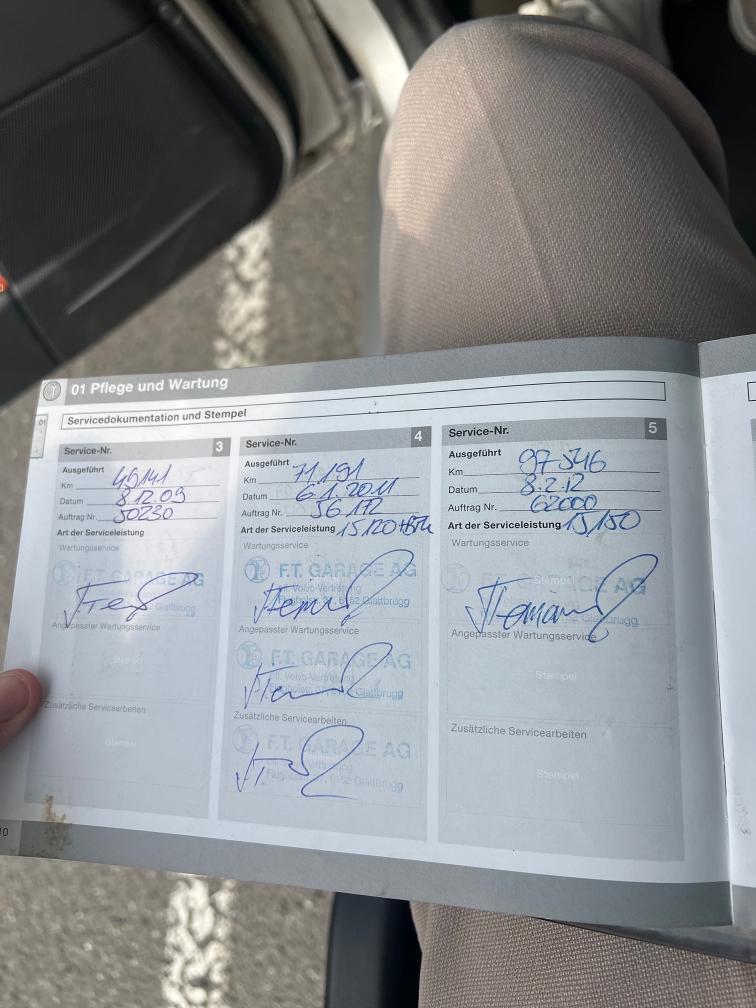 01 Pflege und Wartung
01
Servicedokumentation und Stempel
Service-Nr. 3
Ausgeführt
Km 49141
Datum 8.12.09
Auftrag Nr. 50230
Art der Serviceleistung
Wartungsservice
F.T. GARAGE AG
Glattbrugg
Angepasster Wartungsservice
Stempel
Zusätzliche Servicearbeiten
Stempel
Service-Nr. 4
Ausgeführt
Km 71191
Datum 6.1.2011
Auftrag Nr. 56172
Art der Serviceleistung 15/120
Wartungsservice
F.T. GARAGE AG
Volvo-Vertretung
8152 Glattbrugg
Angepasster Wartungsservice
F.T. GARAGE AG
Volvo-Vertretung
Glattbrugg
Zusätzliche Servicearbeiten
F.T. GARAGE AG
8152 Glattbrugg
Service-Nr. 5
Ausgeführt
Km 97546
Datum 8.2.12
Auftrag Nr. 62000
Art der Serviceleistung 15/150
Wartungsservice
Stempel
GARAGE AG
Angepasster Wartungsservice
Stempel
Zusätzliche Servicearbeiten
Stempel
10